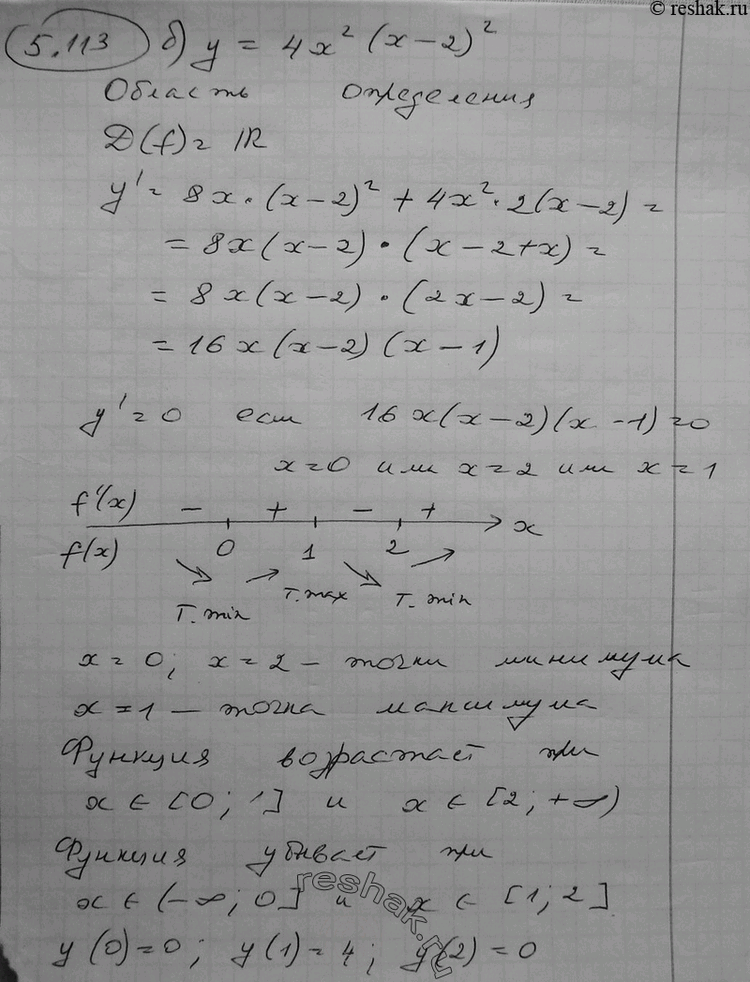 © reshak.ru
5.113 б) y = 4x² (x-2)²
Область определения
D(f) = IR
y' = 8x·(x-2)² + 4x²·2(x-2) =
= 8x(x-2)·(x-2+x) =
= 8x(x-2)·(2x-2) =
= 16x(x-2)(x-1)
y'=0 если 16x(x-2)(x-1)=0
x=0 или x=2 или x=1
f'(x) - + - + x
f(x) 0 1 2
т.min т.max т.min
x=0; x=2 - точки минимума
x=1 - точка максимума
Функция возрастает при
x ∈ [0; 1] и x ∈ [2; +∞)
Функция убывает при
x ∈ (-∞; 0] и x ∈ [1; 2]
reshak.ru
y(0)=0; y(1)=4; y(2)=0